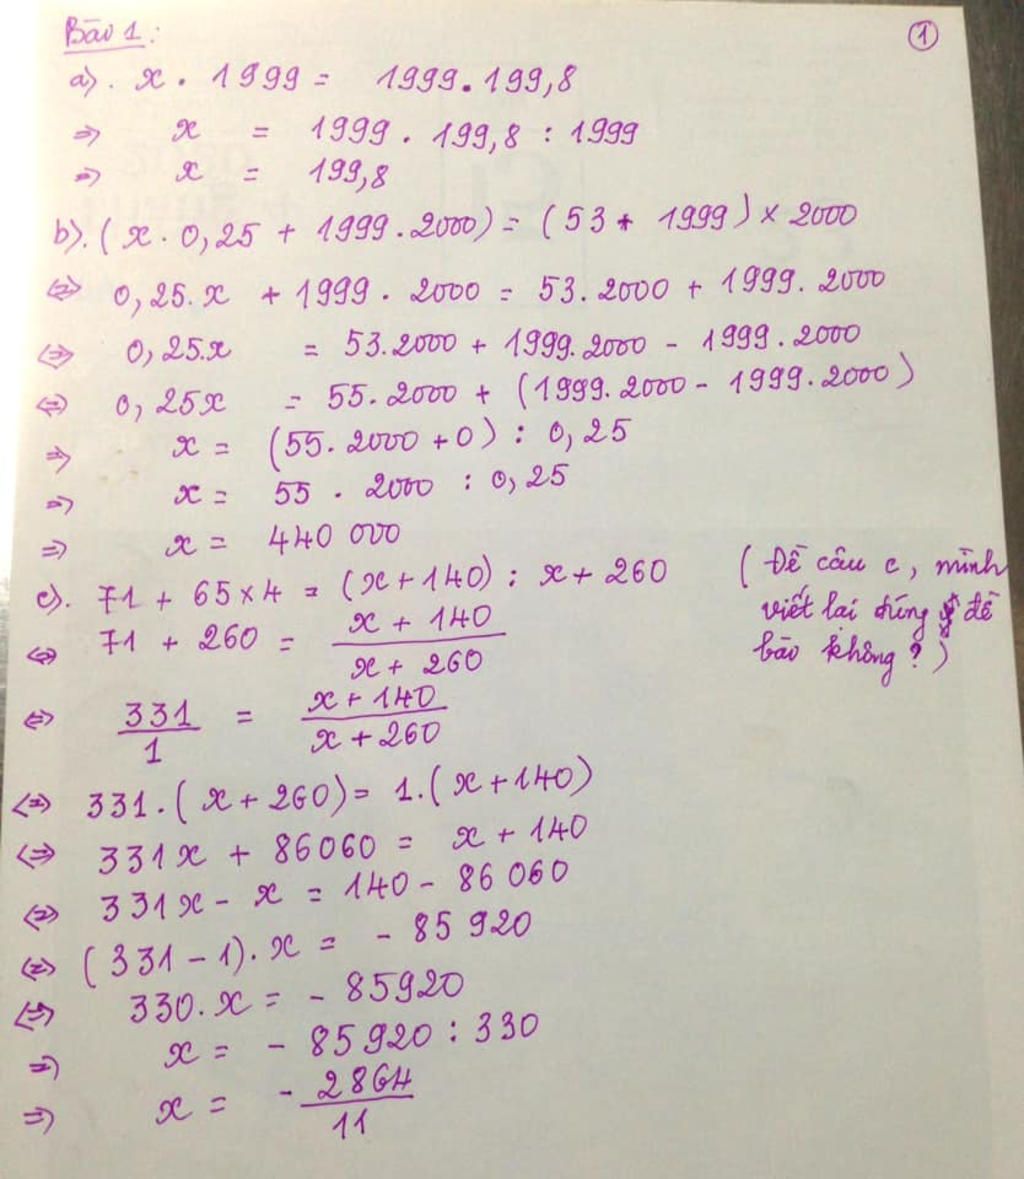 Bài 1: ①
a). x . 1999 = 1999.199,8
=> x = 1999 . 199,8 : 1999
=> x = 199,8
b). (x . 0,25 + 1999.2000) = (53 + 1999) × 2000
<=> 0,25.x + 1999 . 2000 = 53.2000 + 1999.2000
<=> 0,25.x = 53.2000 + 1999.2000 - 1999.2000
<=> 0,25x = 55.2000 + (1999.2000 - 1999.2000)
=> x = (55.2000 + 0) : 0,25
=> x = 55 . 2000 : 0,25
=> x = 440 000
c). 71 + 65×4 = (x+140) : x + 260 ( Đề câu c, mình
viết lại đúng đề
bài không ? )
<=> 71 + 260 = x + 140 / x + 260
<=> 331 / 1 = x + 140 / x + 260
<=> 331.(x + 260) = 1.(x + 140)
<=> 331x + 86060 = x + 140
<=> 331x - x = 140 - 86 060
<=> (331 - 1).x = - 85 920
<=> 330.x = - 85920
=> x = - 85920 : 330
=> x = - 2864 / 11